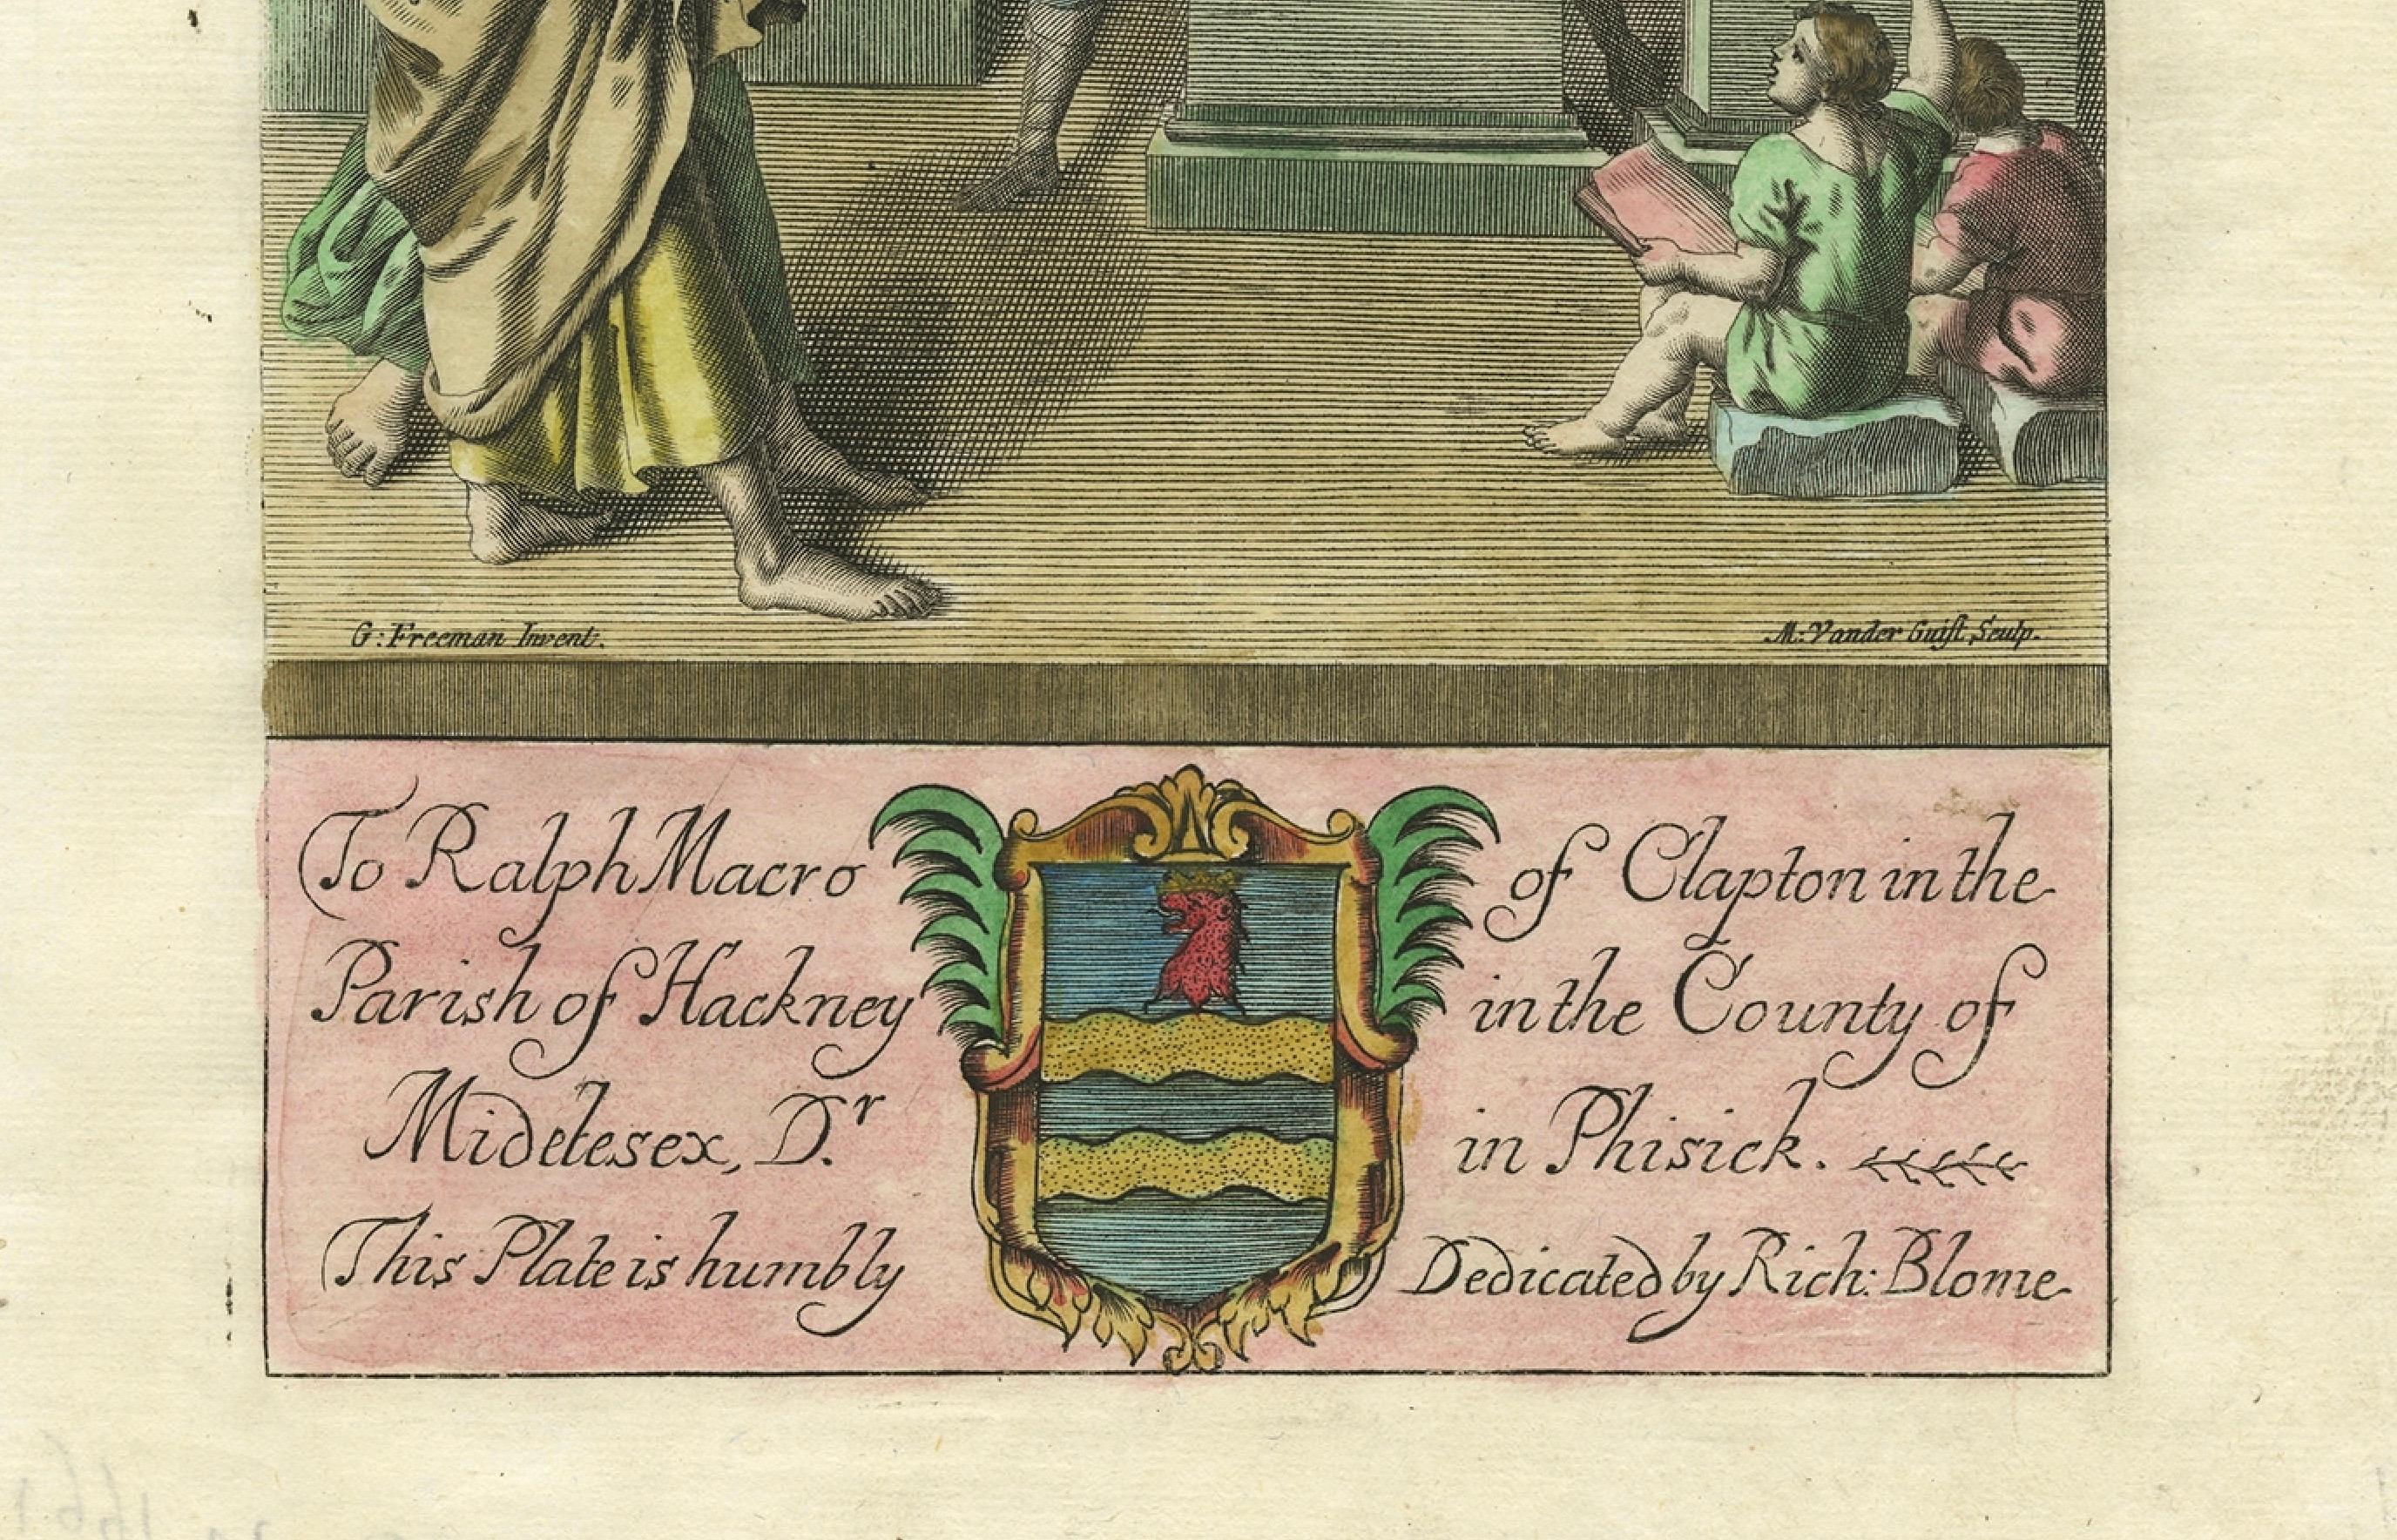 G: Freeman Invent.
M: Vander Guist Sculp.
To Ralph Macro of Clapton in the
Parish of Hackney in the County of
Midelesex, Dr in Phisick.
This Plate is humbly Dedicated by Rich: Blome